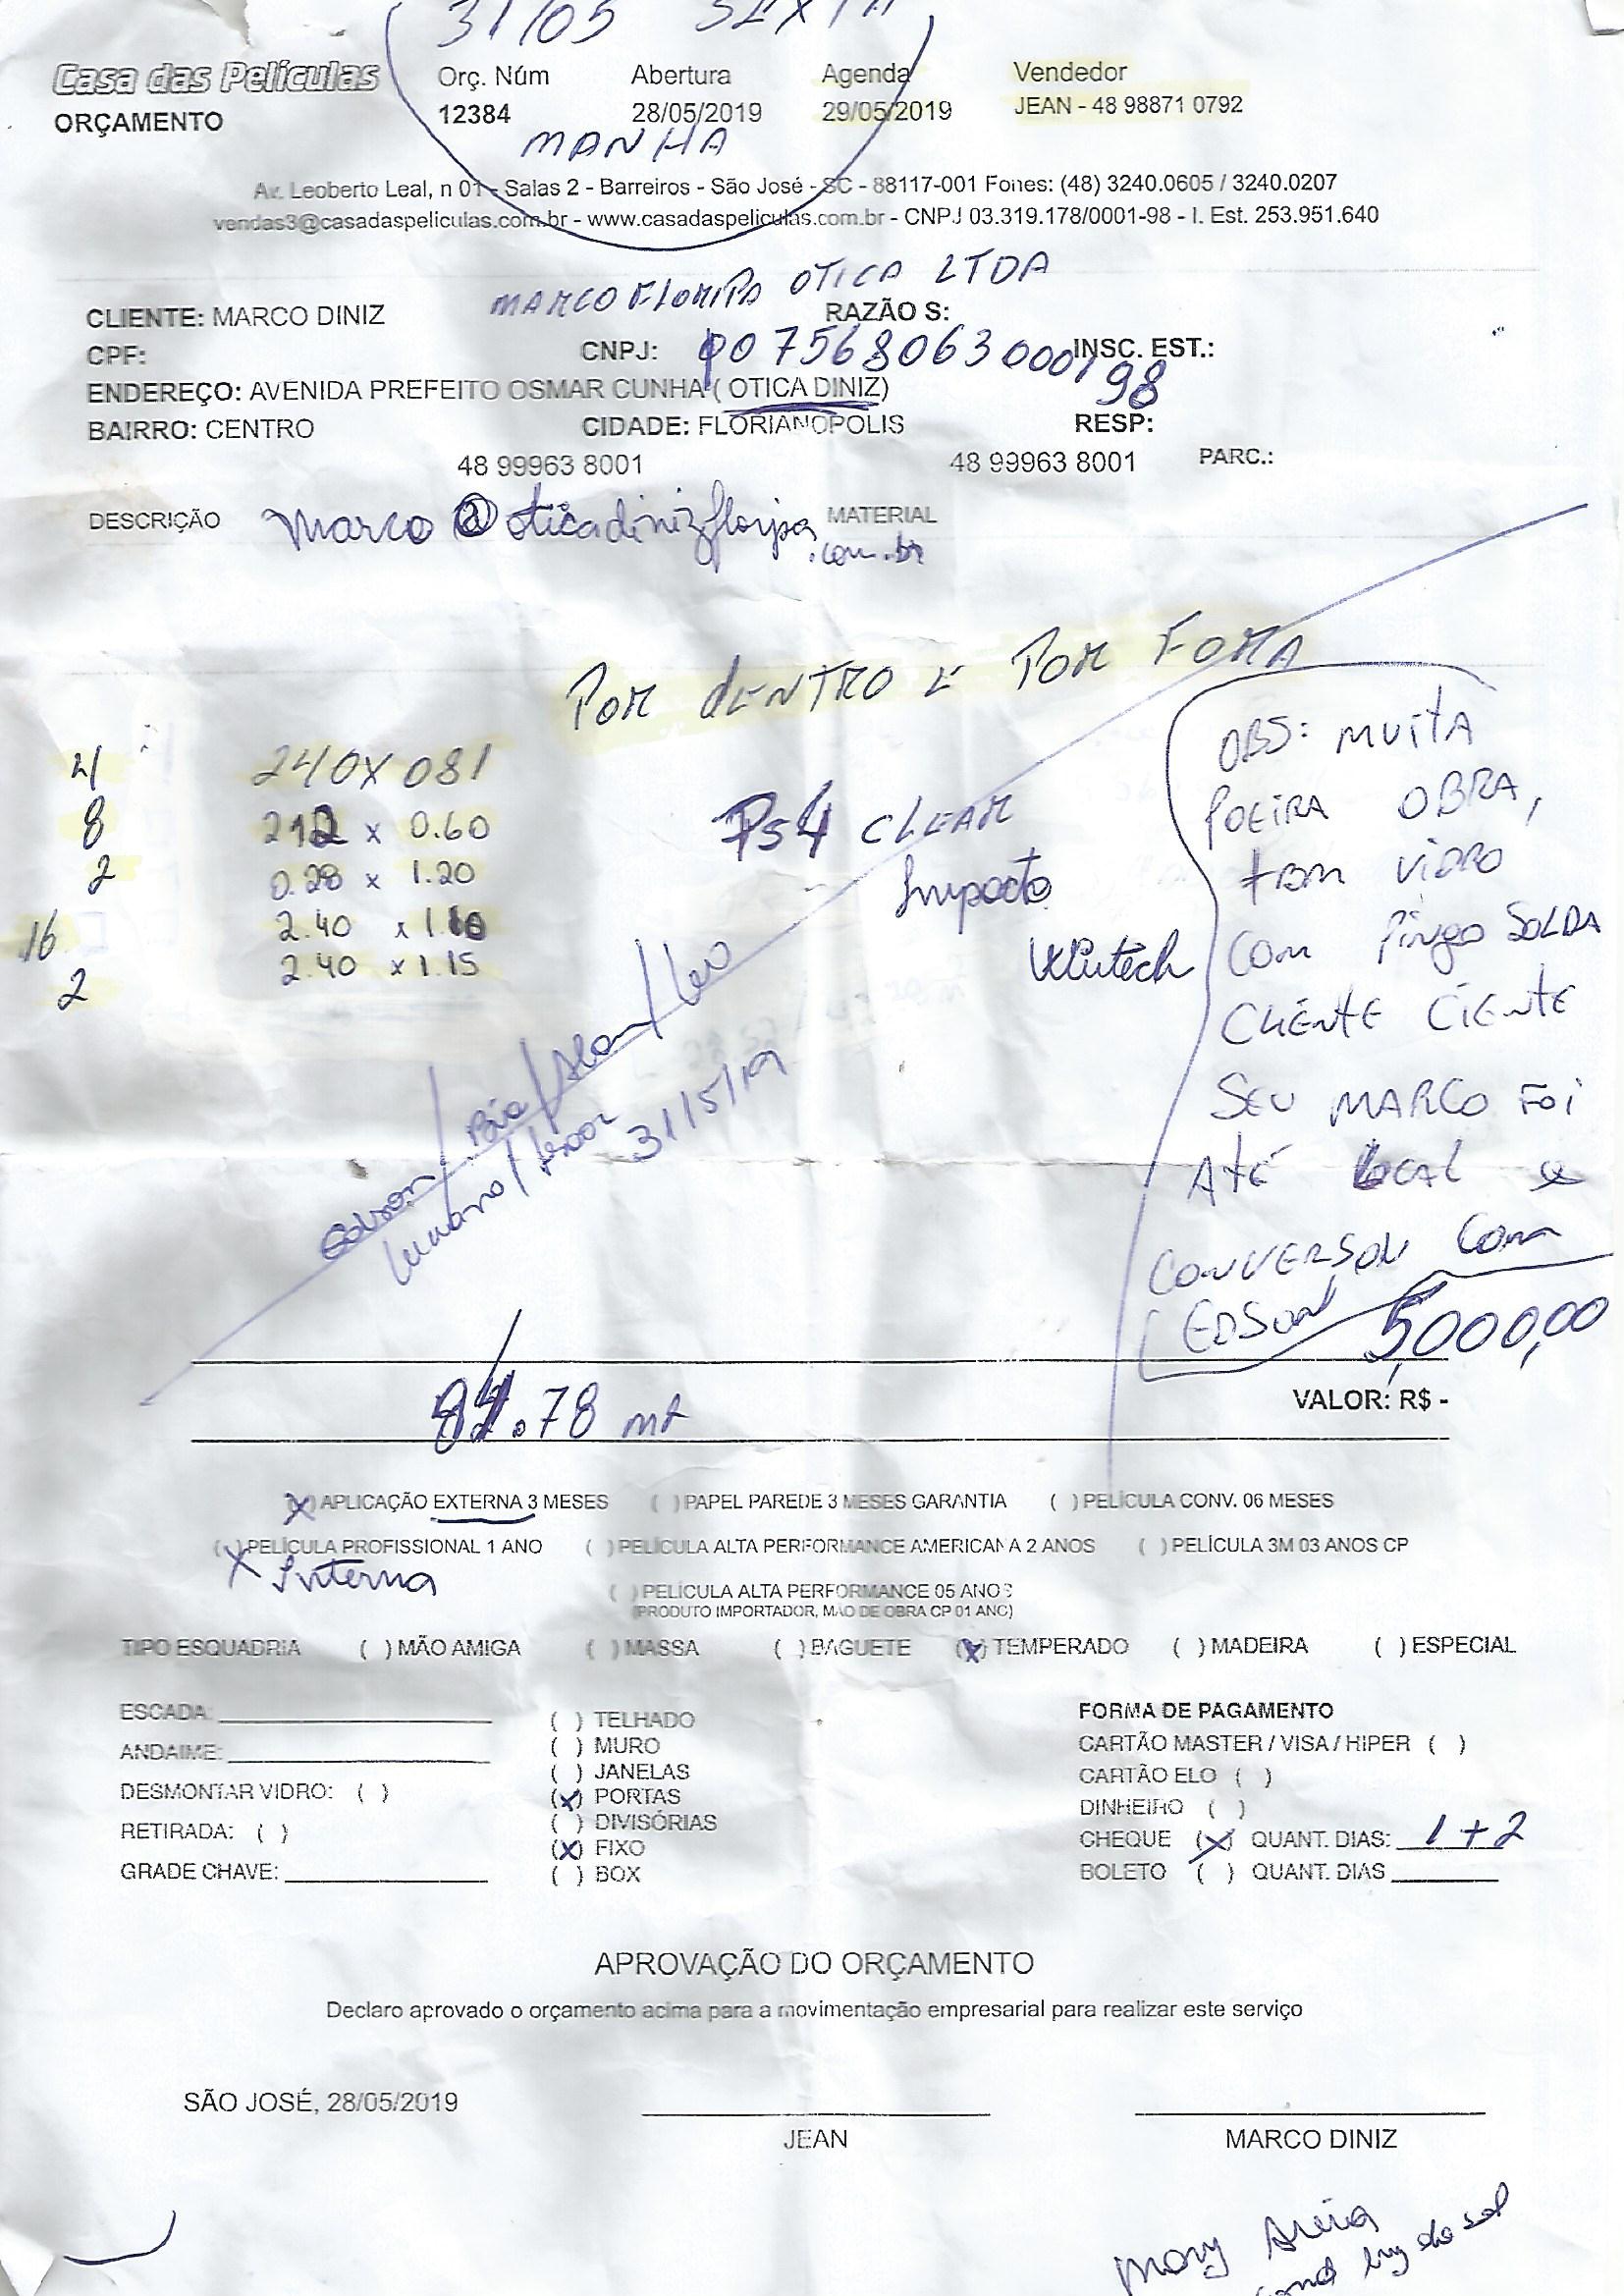 31/05 SEXTA
Casa das Películas Orç. Núm Abertura Agenda Vendedor
ORÇAMENTO 12384 28/05/2019 29/05/2019 JEAN - 48 98871 0792
MANHA
Av. Leoberto Leal, n 01 - Salas 2 - Barreiros - São José - SC - 88117-001 Fones: (48) 3240.0605 / 3240.0207
vendas3@casadaspeliculas.com.br - www.casadaspeliculas.com.br - CNPJ 03.319.178/0001-98 - I. Est. 253.951.640
MARCO FLORIPA OTICA LTDA
CLIENTE: MARCO DINIZ RAZÃO S:
CPF: CNPJ: 007568063000198 INSC. EST.:
ENDEREÇO: AVENIDA PREFEITO OSMAR CUNHA ( OTICA DINIZ)
BAIRRO: CENTRO CIDADE: FLORIANOPOLIS RESP:
48 99963 8001 48 99963 8001 PARC.:
DESCRIÇÃO marco@oticadinizfloripa.com.br MATERIAL
POR DENTRO E POR FORA
4 240X081
8 212 x 0.60
2 0.28 x 1.20
16 2.40 x 1.10
2 2.40 x 1.15
PS4 CLEAR
Impacto
OBS: MUITA
POEIRA OBRA,
tem VIDRO
Com Pingo SOLDA
CLIENTE CIENTE
SEU MARCO FOI
ATÉ LOCAL e
CONVERSOU Com
EDSON
Edson / Bia / Alan / Leo
31/5/19
5,000,00
VALOR: R$ -
.78 mt
(X) APLICAÇÃO EXTERNA 3 MESES ( )PAPEL PAREDE 3 MESES GARANTIA ( )PELÍCULA CONV. 06 MESES
(X)PELÍCULA PROFISSIONAL 1 ANO ( )PELÍCULA ALTA PERFORMANCE AMERICANA 2 ANOS ( )PELÍCULA 3M 03 ANOS CP
Interna
( )PELÍCULA ALTA PERFORMANCE 05 ANOS
(PRODUTO IMPORTADOR, MÃO DE OBRA CP 01 ANO)
TIPO ESQUADRIA ( )MÃO AMIGA ( )MASSA ( )BAGUETE (X)TEMPERADO ( )MADEIRA ( )ESPECIAL
ESCADA: ( ) TELHADO FORMA DE PAGAMENTO
ANDAIME: ( ) MURO CARTÃO MASTER / VISA / HIPER ( )
( ) JANELAS CARTÃO ELO ( )
DESMONTAR VIDRO: ( ) (X) PORTAS DINHEIRO ( )
RETIRADA: ( ) ( ) DIVISÓRIAS CHEQUE (X) QUANT. DIAS: 1+2
GRADE CHAVE: (X) FIXO BOLETO ( ) QUANT. DIAS
( ) BOX
APROVAÇÃO DO ORÇAMENTO
Declaro aprovado o orçamento acima para a movimentação empresarial para realizar este serviço
SÃO JOSÉ, 28/05/2019
JEAN MARCO DINIZ